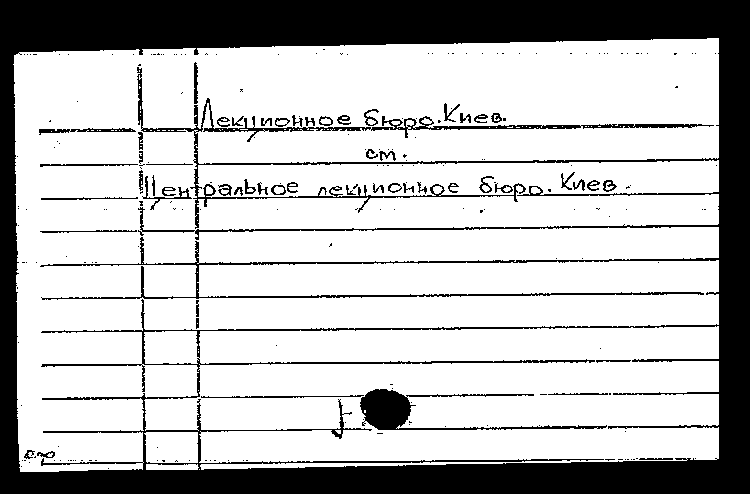 Лекционное бюро. Киев.
см.
Центральное лекционное бюро. Киев.